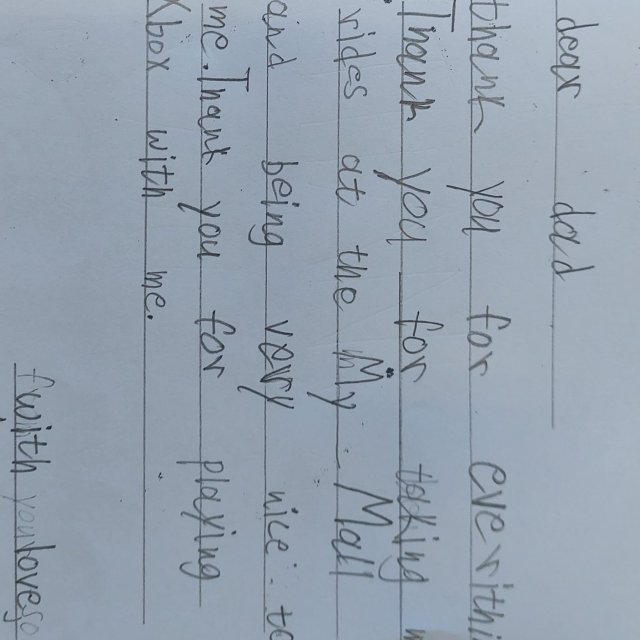 dear dad
thank you for everithi
Thank you for taking
rides at the My Mall
and being very nice to
me. Thank you for playing
Xbox with me.
with love